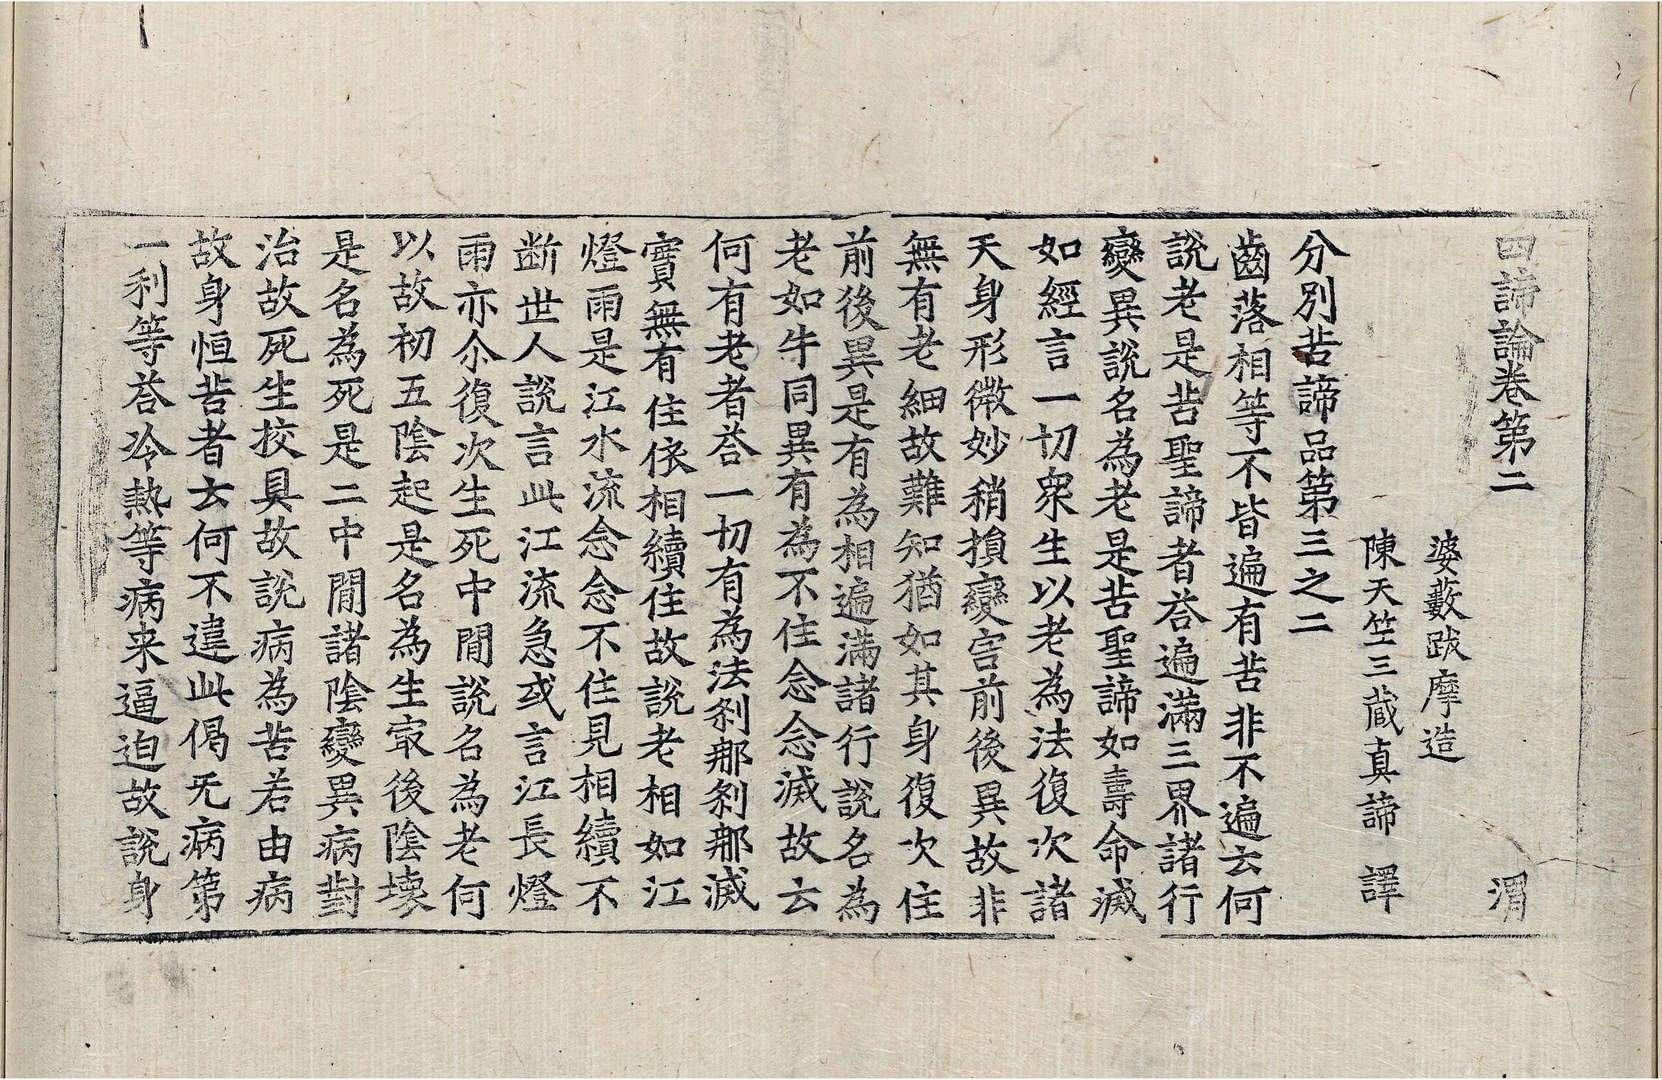 四諦論卷第二 渭
婆藪跋摩造
陳天竺三藏真諦 譯
分別苦諦品第三之二
齒落相等不皆遍有苦非不遍云何
說老是苦聖諦者荅遍滿三界諸行
變異說名為老是苦聖諦如壽命滅
如經言一切衆生以老為法復次諸
天身形微妙稍損變害前後異故非
無有老細故難知猶如其身復次住
前後異是有為相遍滿諸行說名為
老如牛同異有為不住念念滅故云
何有老者荅一切有為法剎那剎那滅
實無有住依相續住故說老相如江
燈雨是江水流念念不住見相續不
断世人說言此江流急或言江長燈
雨亦尒復次生死中間說名為老何
以故初五陰起是名為生㝡後陰壞
是名為死是二中間諸陰變異病對
治故死生挍具故說病為苦若由病
故身恒苦者云何不違此偈无病第
一利等荅冷熱等病来逼迫故說身